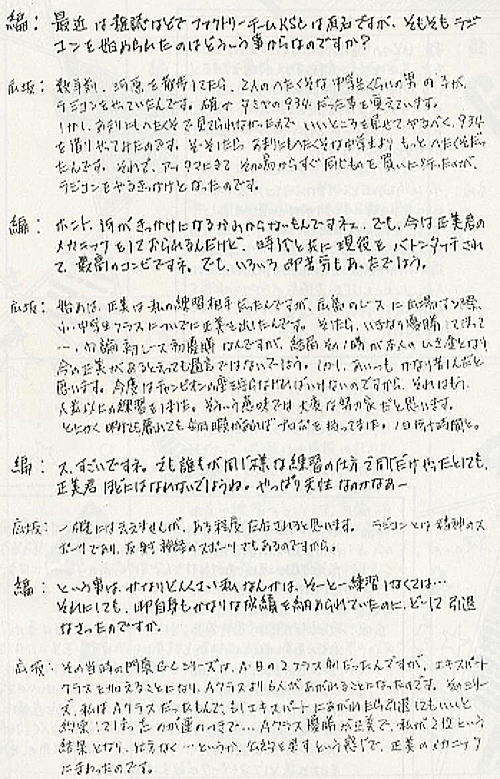 編： 最近は雑誌などでファクトリーチームKSCは有名ですが、そもそもラジ
コンを始められたのはどういう事からなのですか？
広坂： 数年前、河原を散歩してたら、2人のへたくそな中学生くらいの男の子が、
ラジコンをやっていたんです。確かタミヤの934だった事を覚えています。
しかし、あまりにもへたくそで見てられなかったので いいところを見せてやるべく、934
を借りやってみたのです。そ・そしたら あまりにもへたくそな中学生より もっとへたくそだっ
たんです。それで、アッタマにきて その足からすぐ同じものを買いに行ったのが、
ラジコンをやるきっかけとなったのです。
編： ホント、何がきっかけになるかわからないもんですネェ、でも、今は正美君の
メカニックをしておられるんだけど、時代と共に現役をバトンタッチされ
て、最高のコンビですネ。でも、いろいろ御苦労もあったでしょう。
広坂： 始めは、正美は私の練習相手だったんですが、広島のレースに
小・中学生クラスについでに正美を出したんです。そしたら、いきなり優勝してしまって
…勿論初レース初優勝なんですが、結局その1勝が本人のいき意となり
今の正美があると云っても過言ではないでしょう。しかし、あいつも かなり苦しんだと
思います。今度はチャンピオンの座を守らなければいけないのですから、それはもう、
人数以上の練習をしました。そういう意味では 大変な努力家だと思います。
とにかく 明けても暮れても 毎日暇があればプロポを持ってました。1日何十時間と。
編： ス、すごいですネ。でも誰もが同じ様な練習の仕方で同じだけやったとしても、
正美君ほどにはなれないでしょうね。やっぱり天性なのかなあー
広坂： 一概には云えませんが、ある程度左右されると思います。 ラジコンとは精神のス
ポーツであり、反射神経のスポーツでもあるのですから。
編： という事は、かなりどんくさい私なんかは、そーとー練習しなくては…
それにしても、御自身もかなりな成績を納められていたのに、どーして引退
なさったのですか。
広坂： その当時の関東GCシリーズは、A・Bの2クラス制だったんですが、エキスパート
クラスを加えることになり、Aクラスより6人があがれることになったのです。そのシリー
ズ、私はAクラスだったもんで、もしエキスパートにあがれたら引退してもいいと
約束してしまったのが運のつきで…Aクラス優勝が正美で、私が2位という
結果となり、仕方なく…というか、公約を果すという感じで、正美のメカニック
にまわったのです。